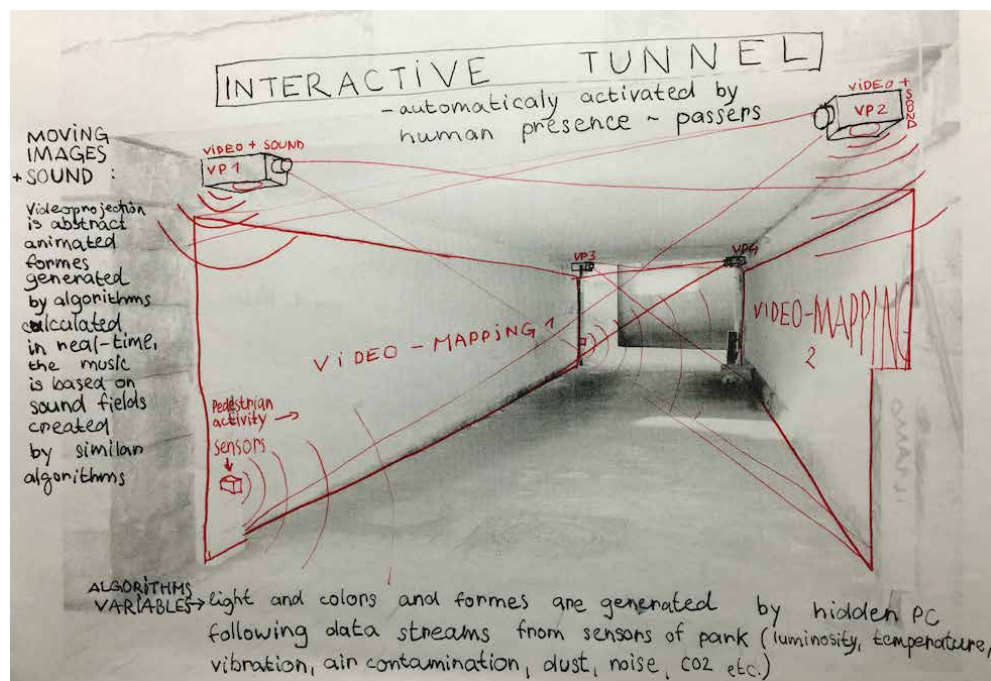 INTERACTIVE TUNNEL
-automaticaly activated by
human presence ~ passers
MOVING
IMAGES
+ SOUND :
Videoprojection
is abstract
animated
formes
generated
by algorithms
calculated
in real-time,
the music
is based on
sound fields
created
by similar
algorithms
VIDEO + SOUND
VP1
VIDEO + SOUND
VP2
VP3
VP4
VIDEO-MAPPING 1
VIDEO-MAPPING
2
Pedestrian
activity →
sensors
ALGORITHMS
VARIABLES → light and colors and formes are generated by hidden PC
following data streams from sensors of park (luminosity, temperature,
vibration, air contamination, dust, noise, CO2 etc.)